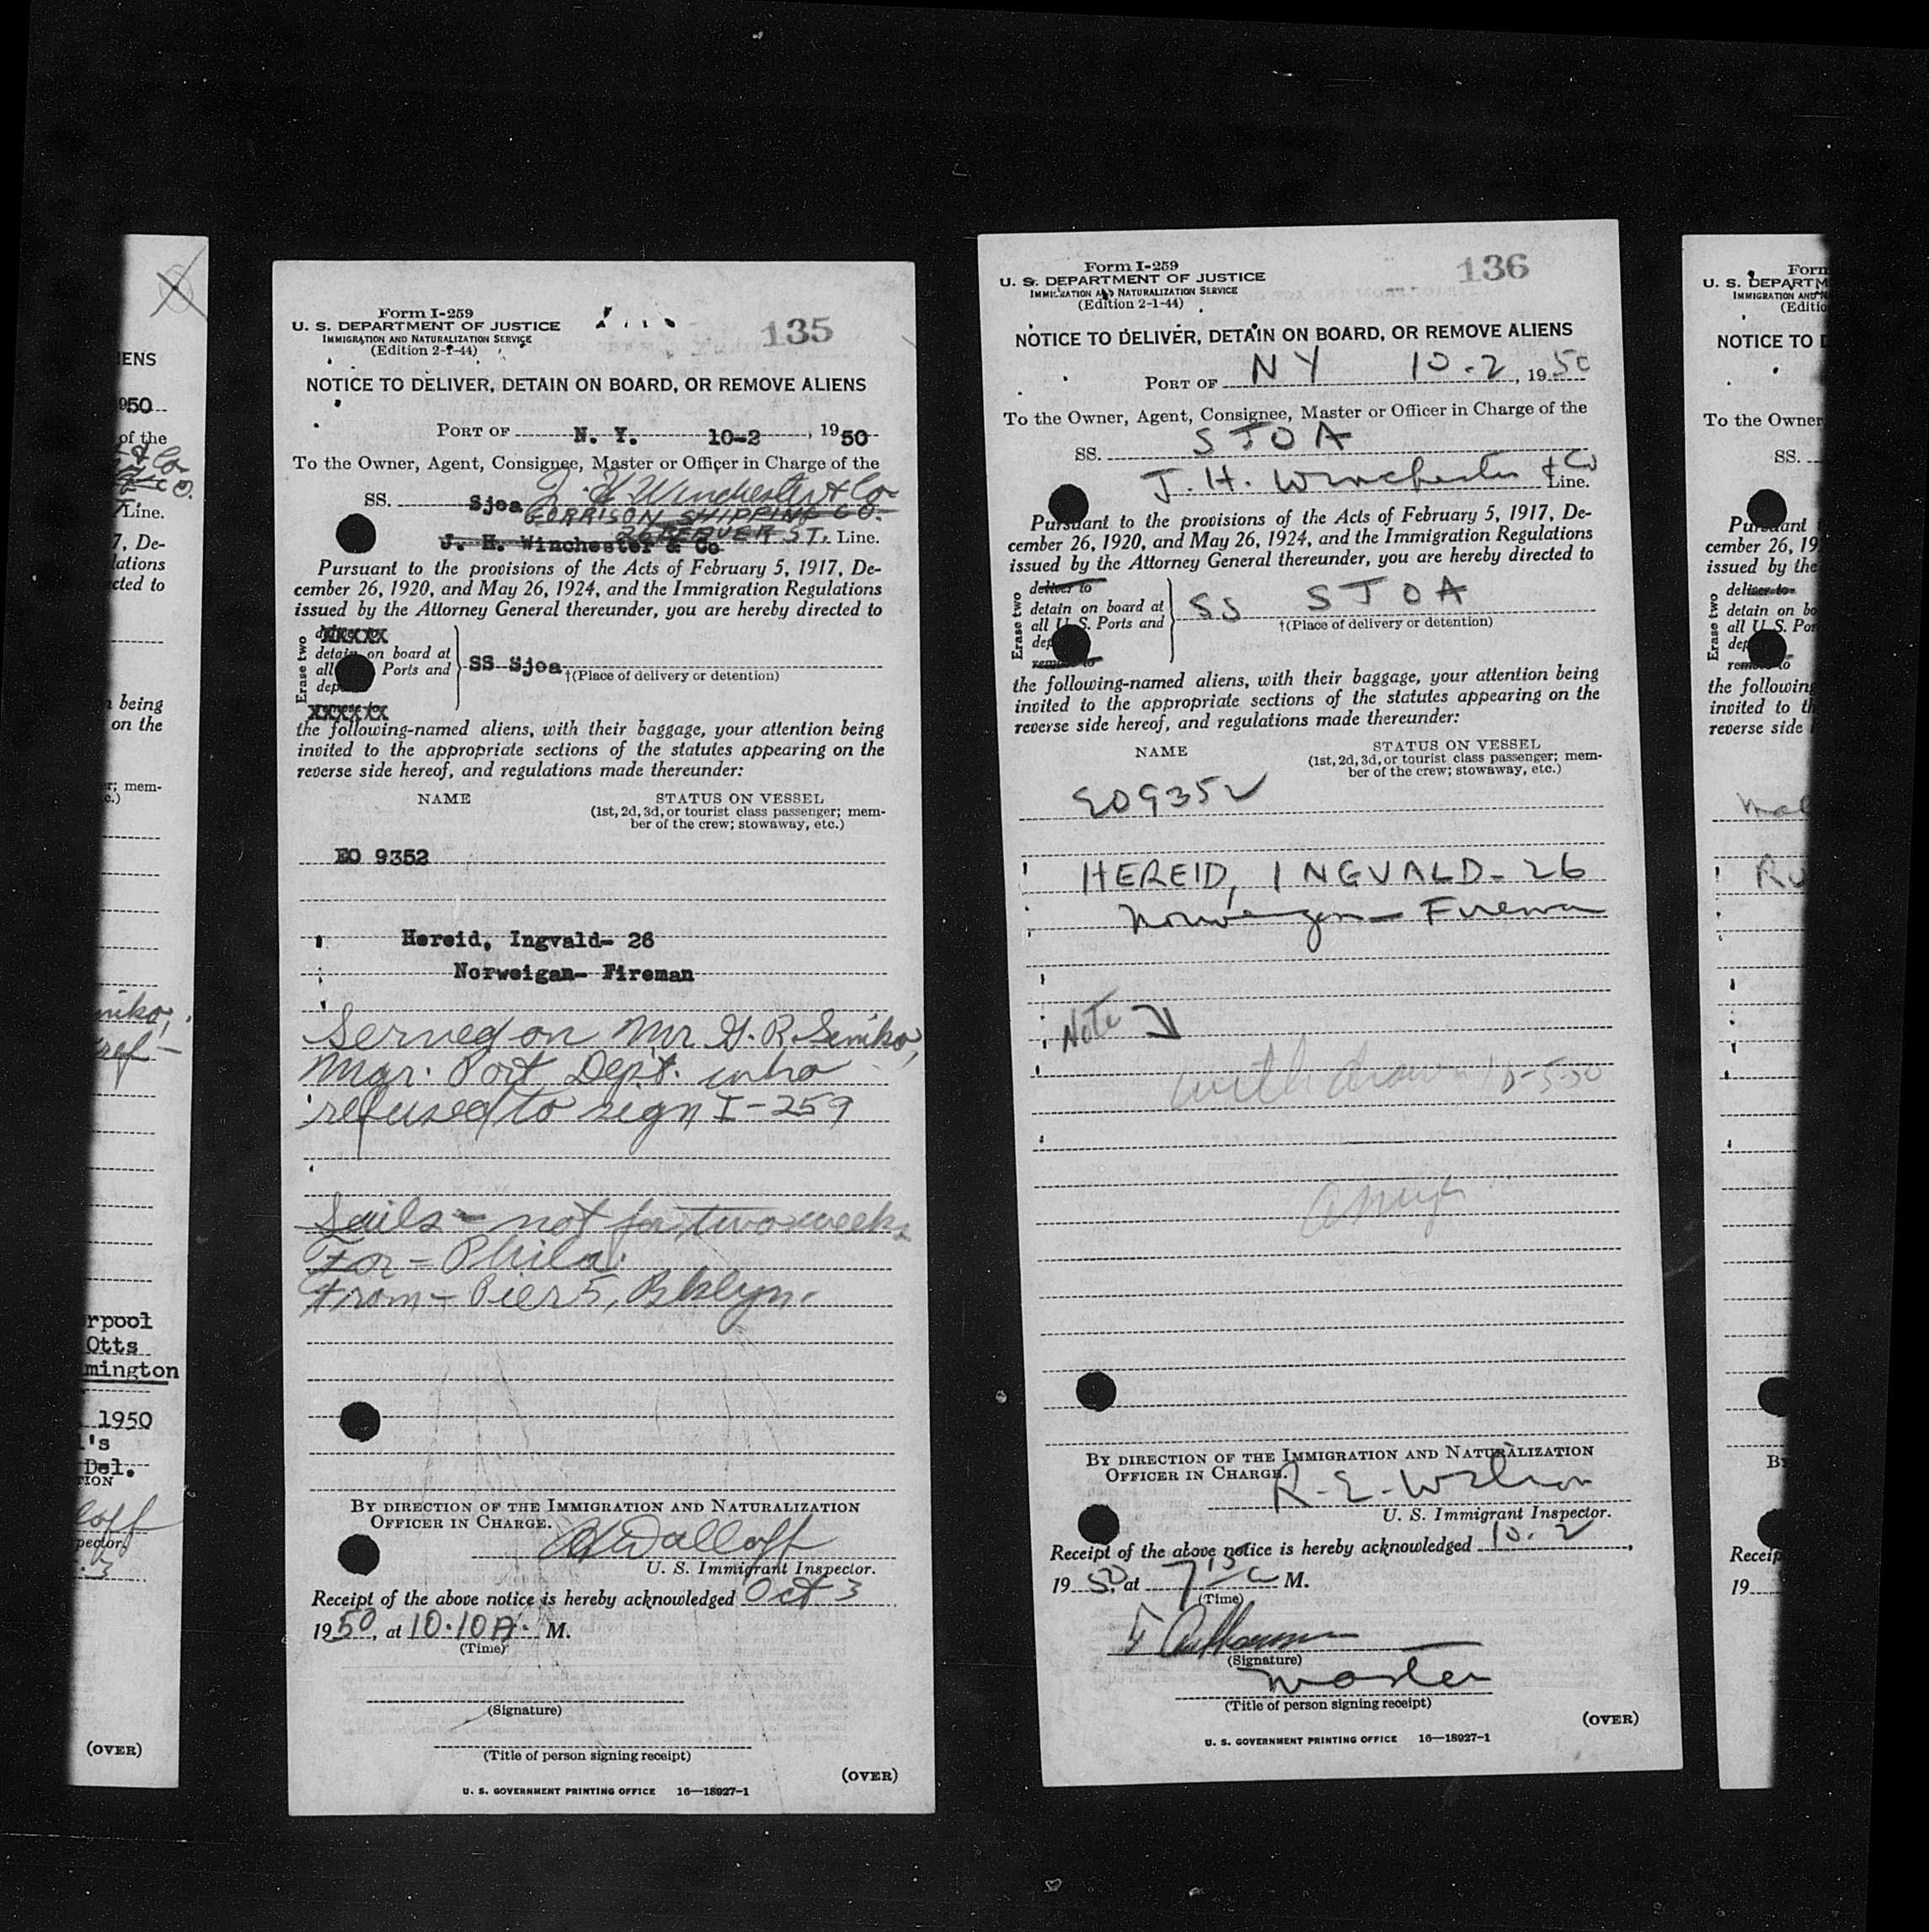 IENS
950
of the
& Co
Line.
7, De-
lations
cted to
being
on the
r; mem-
c.)
niko,
ref -
rpool
Otts
mington
1950
's
Del.
TION
loff
pector.
. 3
(OVER)
Form I-259
U. S. DEPARTMENT OF JUSTICE
IMMIGRATION AND NATURALIZATION SERVICE
(Edition 2-1-44)
135
NOTICE TO DELIVER, DETAIN ON BOARD, OR REMOVE ALIENS
PORT OF N. Y. 10-2, 1950
To the Owner, Agent, Consignee, Master or Officer in Charge of the
SS. Sjoa J. H Winchester & Co
GORRISON SHIPPING CO.
26 BEAVER ST.
J. H. Winchester & Co Line.
Pursuant to the provisions of the Acts of February 5, 1917, De-
cember 26, 1920, and May 26, 1924, and the Immigration Regulations
issued by the Attorney General thereunder, you are hereby directed to
Erase two
XXXXXX
detain on board at
all Ports and
dep
XXXXXX
SS Sjoa †(Place of delivery or detention)
the following-named aliens, with their baggage, your attention being
invited to the appropriate sections of the statutes appearing on the
reverse side hereof, and regulations made thereunder:
NAME STATUS ON VESSEL
(1st, 2d, 3d, or tourist class passenger; mem-
ber of the crew; stowaway, etc.)
EO 9352
Hereid, Ingvald- 26
Norweigan- Fireman
Served on Mr. G. R. Seniko,
Mgr. Port Dept. who
refused to sign I-259
Sails - not for two weeks
For - Phila.
From - Pier 5, Bklyn.
BY DIRECTION OF THE IMMIGRATION AND NATURALIZATION
OFFICER IN CHARGE.
U. S. Immigrant Inspector.
Receipt of the above notice is hereby acknowledged Oct 3
1950, at 10.10 A. M.
(Time)
(Signature)
(Title of person signing receipt)
(OVER)
U. S. GOVERNMENT PRINTING OFFICE 16—18927-1
Form I-259
U. S. DEPARTMENT OF JUSTICE
IMMIGRATION AND NATURALIZATION SERVICE
(Edition 2-1-44)
136
NOTICE TO DELIVER, DETAIN ON BOARD, OR REMOVE ALIENS
PORT OF NY 10-2, 1950
To the Owner, Agent, Consignee, Master or Officer in Charge of the
SS. SJOA
J. H. Winchester & Co Line.
Pursuant to the provisions of the Acts of February 5, 1917, De-
cember 26, 1920, and May 26, 1924, and the Immigration Regulations
issued by the Attorney General thereunder, you are hereby directed to
Erase two
deliver to
detain on board at
all U. S. Ports and
dep
remove to
SS SJOA
†(Place of delivery or detention)
the following-named aliens, with their baggage, your attention being
invited to the appropriate sections of the statutes appearing on the
reverse side hereof, and regulations made thereunder:
NAME STATUS ON VESSEL
(1st, 2d, 3d, or tourist class passenger; mem-
ber of the crew; stowaway, etc.)
EO9352
HEREID, INGVALD - 26
Norwegian - Fireman
Note
withdrawn 10-5-50
BY DIRECTION OF THE IMMIGRATION AND NATURALIZATION
OFFICER IN CHARGE.
R. E. Wilson
U. S. Immigrant Inspector.
Receipt of the above notice is hereby acknowledged 10-2,
1950, at 7 15 a M.
(Time)
(Signature)
Master
(Title of person signing receipt)
(OVER)
U. S. GOVERNMENT PRINTING OFFICE 16—18927-1
Form
U. S. DEPARTM
IMMIGRATION AND N
(Editio
NOTICE TO D
To the Owner
SS.
Pursuant
cember 26, 19
issued by the
Erase two
deliver to
detain on bo
all U. S. Por
dep
remove to
the following
invited to th
reverse side
Ru
By
Receip
19